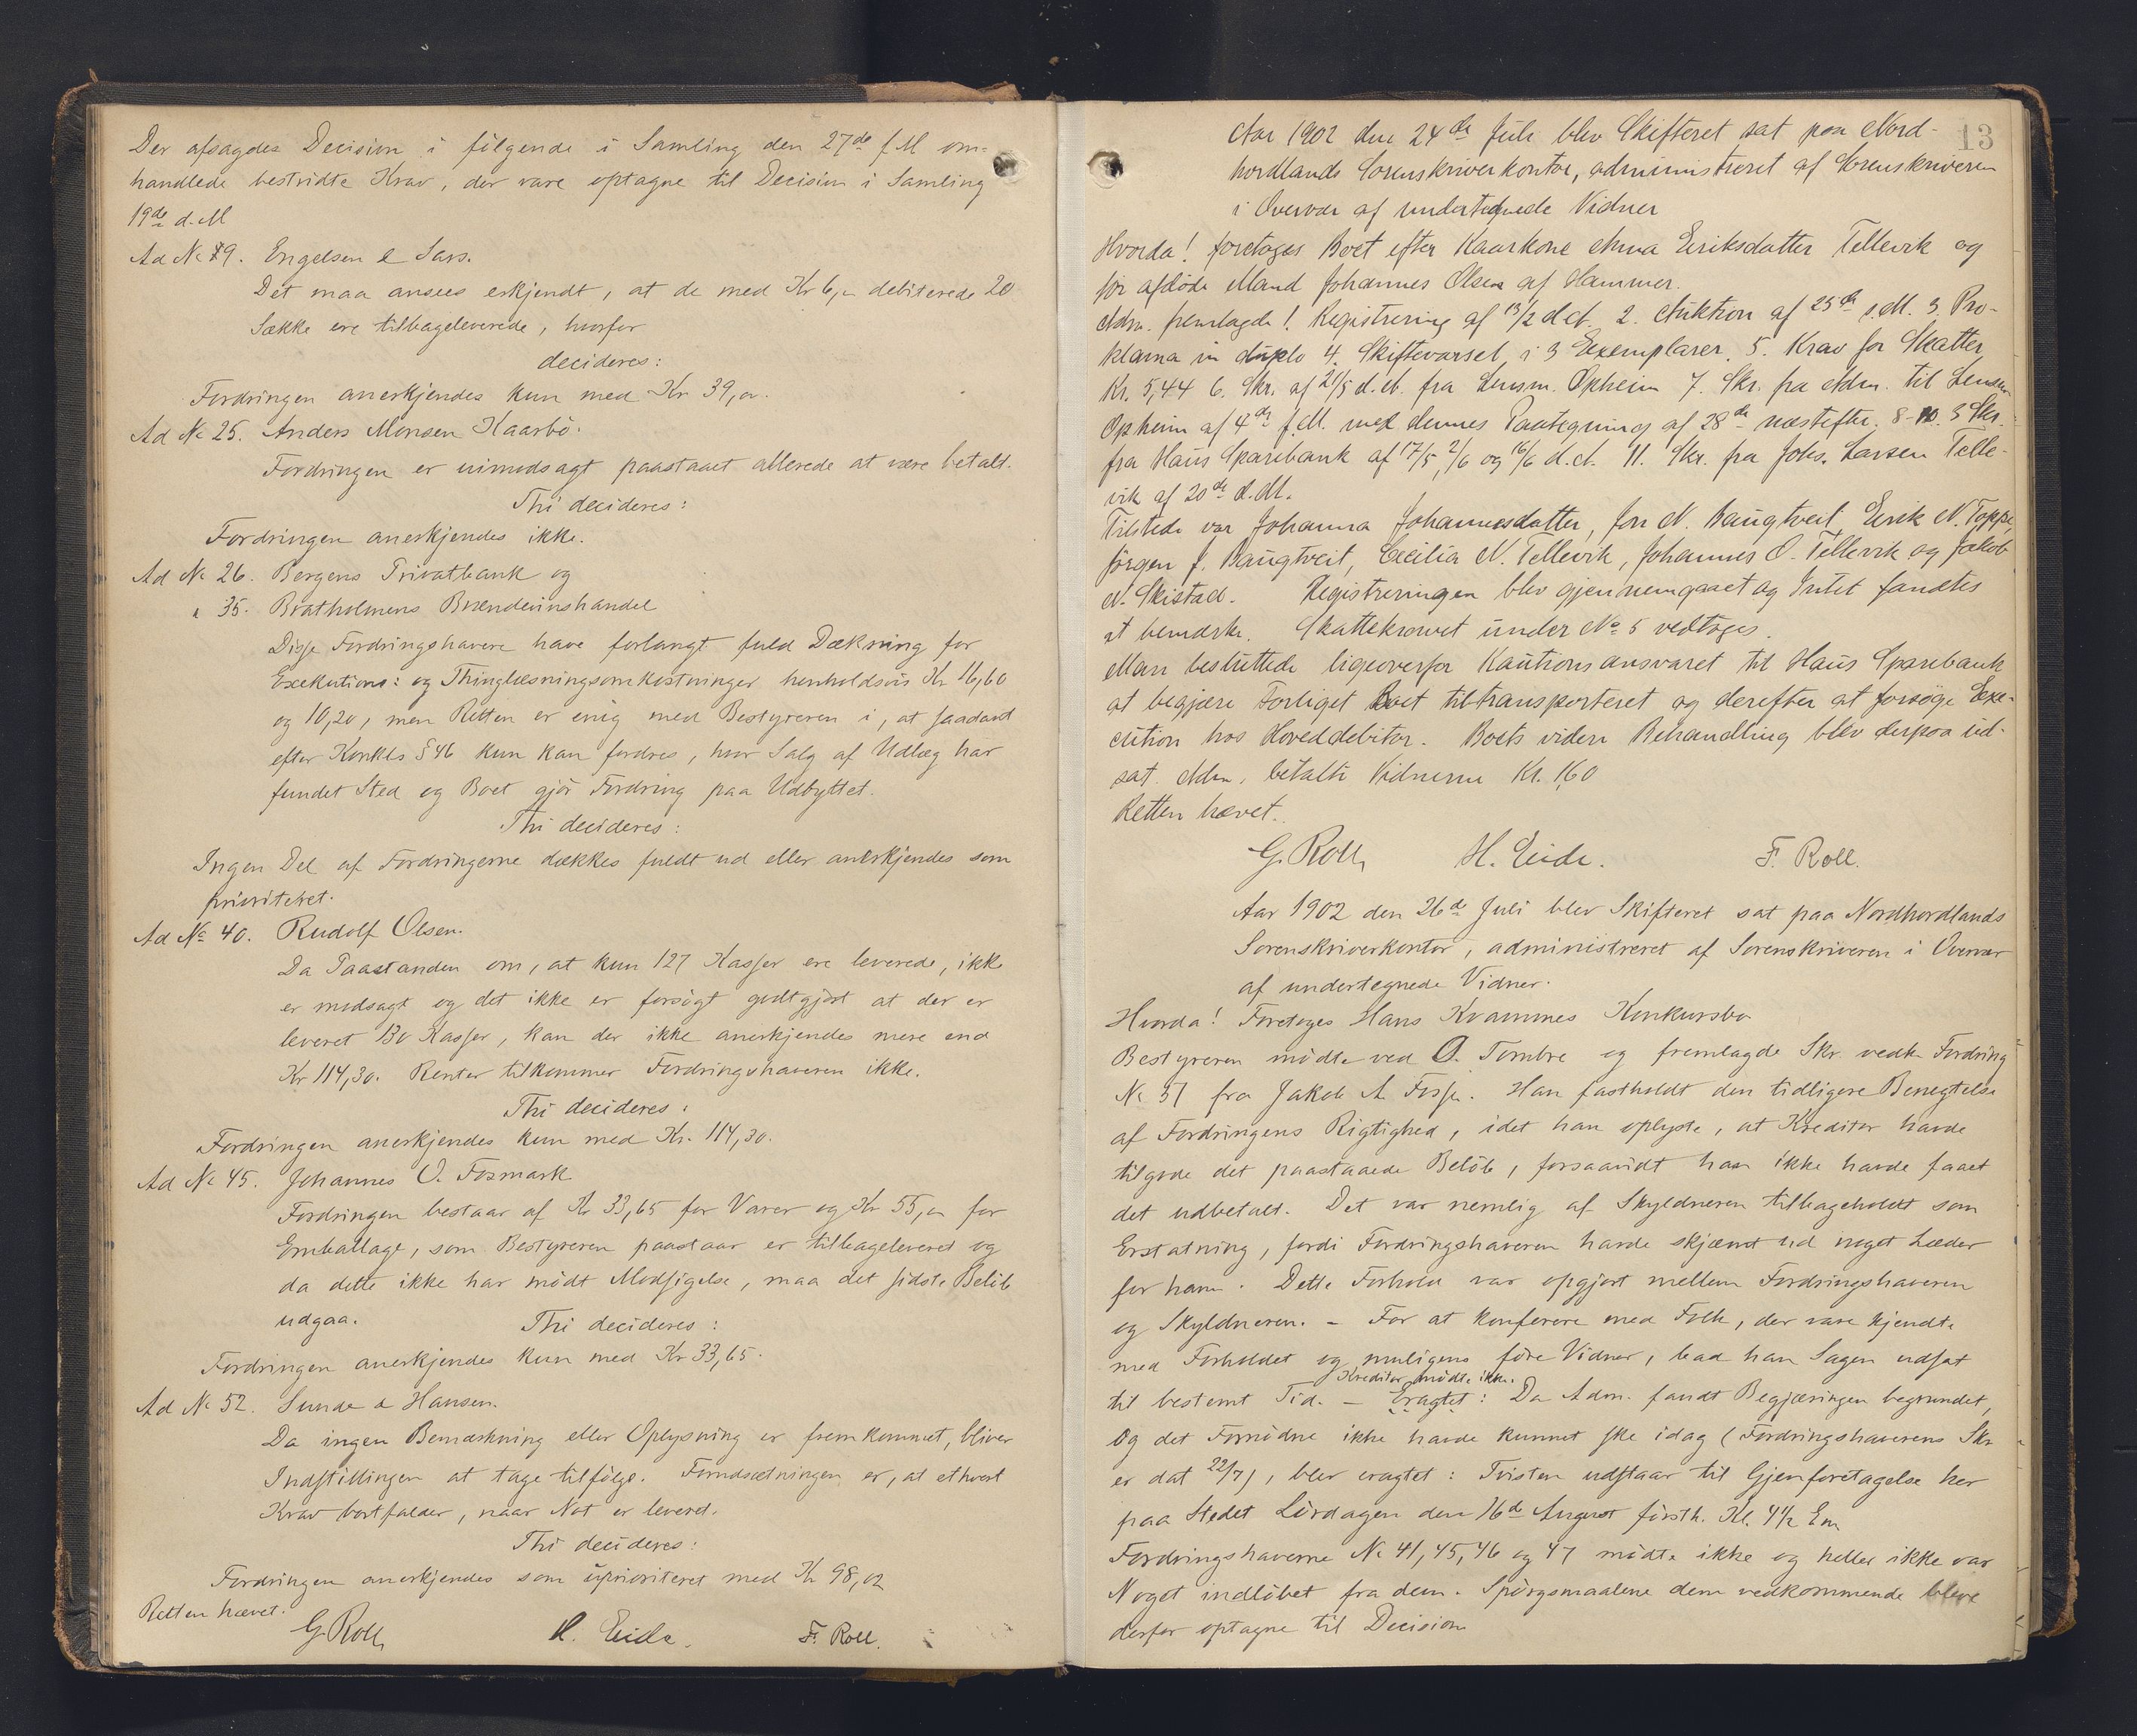 Der afsagdes Decision i følgende i Samling den 27de f M om-
handlede bestridte Krav, der vare optagne til Decision i Samling
19de d. M
Ad No 19. Engelsen & Sars.
Det maa ansees erkjendt, at de med Kr 6,„ debiterede 20
Sække ere tilbageleverede, hvorfor
decideres:
Fordringen anerkjendes kun med Kr 39,„.
Ad No 25. Anders Monsen Kaarbö.
Fordringen er uimodsagt paastaaet allerede at være betalt.
Thi decideres:
Fordringen anerkjendes ikke.
Ad No 26. Bergens Privatbank og
" 35. Bratholmens Brændevinshandel
Disse Fordringshavere have forlangt fuld Dækning for
Exekutions: og Thinglæsningsomkostninger henholdsvis Kr 16,60
og 10,20, men Retten er enig med Bestyreren i, at saadant
efter Konkls § 46 kun kan fordres, hvor Salg af Udlæg har
fundet Sted og Boet gjör Fordring paa Udbyttet.
Thi decideres:
Ingen Del af Fordringerne dækkes fuldt ud eller anerkjendes som
prioriteret.
Ad No 40. Rudolf Olsen.
Da Paastanden om, at kun 127 Kasser ere leverede, ikke
er modsagt og det ikke er forsögt godtgjort at der er
leveret 130 Kasser, kan der ikke anerkjendes mere end
Kr 114,30. Renter tilkommer Fordringshaveren ikke.
Thi decideres:
Fordringen anerkjendes kun med Kr. 114,30.
Ad No 45. Johannes O. Fosmark
Fordringen bestaar af Kr 33,65 for Varer og Kr 55,„ for
Emballage, som Bestyreren paastaar er tilbageleveret og
da dette ikke har mödt Modsigelse, maa det sidste Belöb
udgaa. Thi decideres:
Fordringen anerkjendes kun med Kr 33,65.
Ad No 52. Sunde & Hansen.
Da ingen Bemærkning eller Oplysning er fremkommet, bliver
Indstillingen at tage tilfölge. Forudsætningen er, at ethvert
Krav bortfalder, naar Not er leveret.
Thi decideres:
Fordringen anerkjendes som uprioriteret med Kr 98,02
Retten hævet.
G. Roll H. Eide. F. Roll.
13
Aar 1902 den 24de Juli blev Skifteret sat paa Nord-
hordlands Sorenskriverkontor, administreret af Sorenskriveren
i Overvær af undertegnede Vidner
Hvorda! foretoges Boet efter Kaarkone Anna Eiriksdatter Tellevik og
før afdöde Mand Johannes Olsen af Hammer.
Adm. fremlagde 1. Registrering af 13/2 d.A. 2. Auktion af 25de s.M. 3. Pro-
klama in duplo 4. Skiftevarsel i 3 Exemplarer. 5. Krav for Skatter
Kr. 5,44 6. Skr. af 21/5 d.A. fra Lensm. Opheim 7. Skr. fra Adm. til Lensm
Opheim af 4de f.M. med dennes Paategning af 28de næstefter. 8-10. 3 Skr.
fra Haus Sparebank af 17/5, 2/6 og 16/6 d.A. 11. Skr. fra Johs. Larsen Telle-
vik af 20de d.M.
Tilstede var Johanna Johannesdatter, Jon N. Haugtveit, Eirik N. Toppe,
Jörgen J. Haugtveit, Cecilia N. Tellevik, Johannes O. Tellevik og Jakob
N. Skistad. Registreringen blev gjennemgaaet og Intet fandtes
at bemærke. Skattekravet under No 5 vedtoges.
Man besluttede ligeoverfor Kautionsansvaret til Haus Sparebank
at begjære Forliget Boet tiltransporteret og derefter at forsöge Exe-
cution hos Hoveddebitor. Boets videre Behandling blev derpaa ud-
sat. Adm. betalte Vidnerne Kr. 1,60
Retten hævet.
G. Roll H. Eide. F. Roll.
Aar 1902 den 26de Juli blev Skifteret sat paa Nordhordlands
Sorenskriverkontor, administreret af Sorenskriveren i Overvær
af undertegnede Vidner.
Hvorda! Foretoges Hans Kvammes Konkursbo
Bestyreren mödte ved O. Tombre og fremlagde Skr. vedk Fordring
No 31 fra Jakob A Fosse. Han fastholdt den tidligere Benegtelse
af Fordringens Rigtighed, idet han oplyste, at Kreditor havde
tilgode det paastaaede Belöb, forsaavidt han ikke havde faaet
det udbetalt. Det var nemlig af Skyldneren tilbageholdt som
Erstatning, fordi Fordringshaveren havde skjæmt ud noget Læder
for ham. Dette Forhold var opgjort mellem Fordringshaveren
og Skyldneren. - For at konferere med Folk, der vare kjendte
med Forholdet og muligens före Vidner, bad han Sagen udsat
Kreditor mödte ikke.
til bestemt Tid. - Eragtet: Da Adm. fandt Begjæringen begrundet,
og det Fornödne ikke havde kunnet ske idag (Fordringshaverens Skr
er dat 22/7), blev eragtet: Tvisten udstaar til Gjenforetagelse her
paa Stedet Lördagen den 16de August förstk. Kl. 4 1/2 Em
Fordringshaverne No 41, 45, 46 og 47 mödte ikke og heller ikke var
Noget indlöbet fra dem. Spörgsmaalene dem vedkommende bleve
derfor optagne til Decision